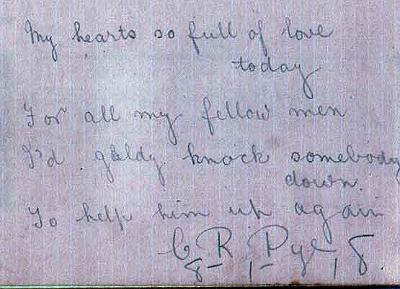 My hearts so full of love
today
For all my fellow men
I'd gladly knock somebody
down.
To help him up again
C. R. Pye